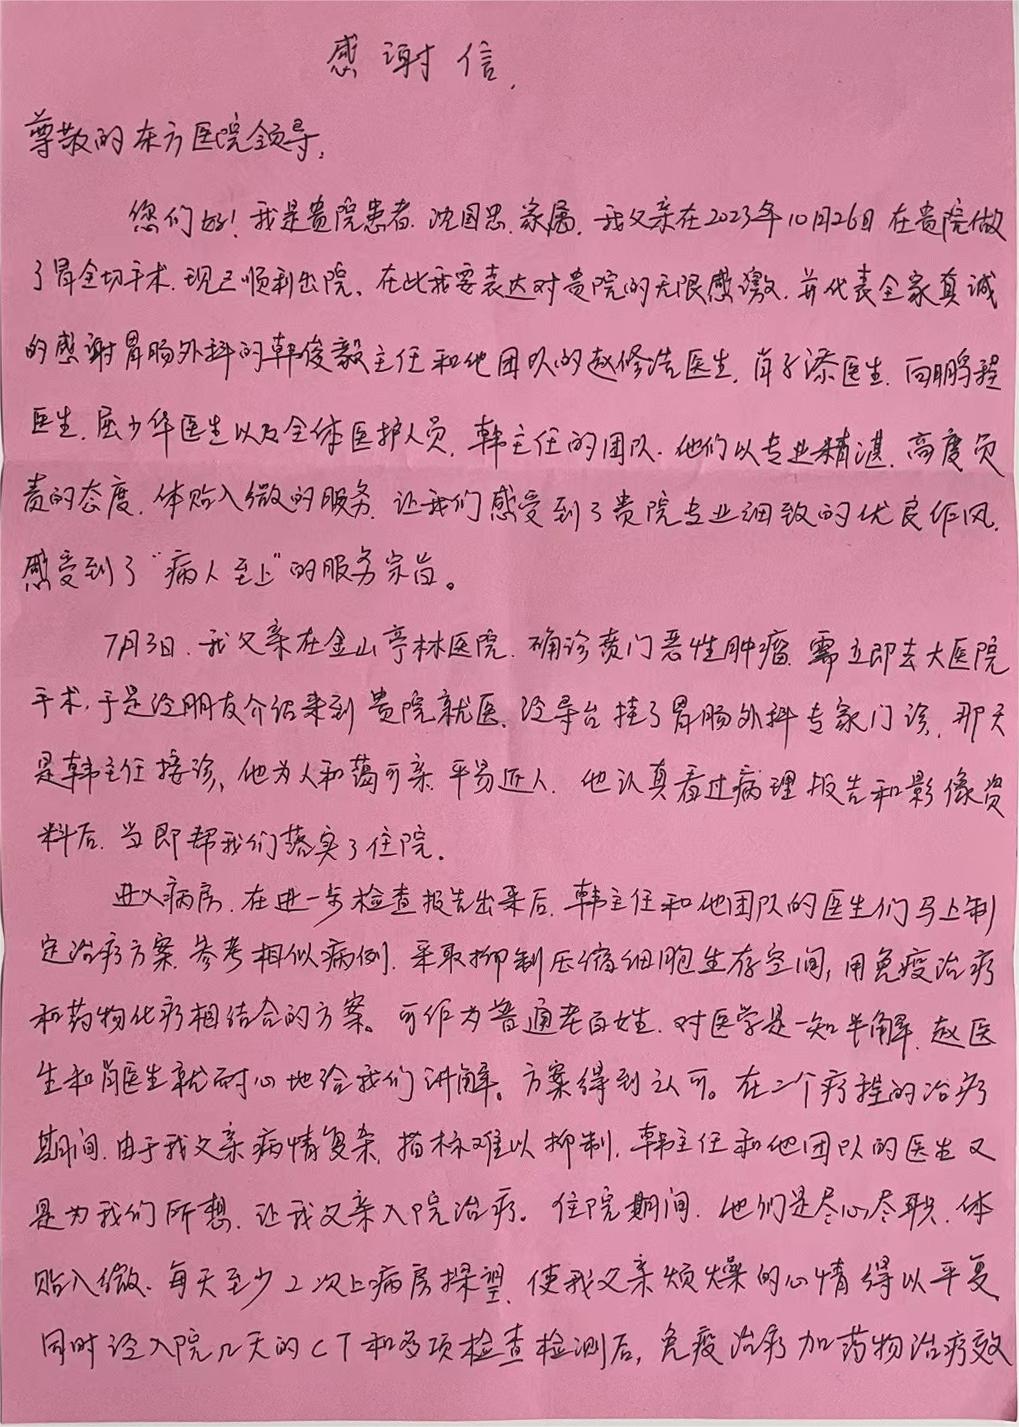 感谢信.
尊敬的东方医院领导,
您们好!我是贵院患者.沈国忠.家属.我父亲在2023年10月26日在贵院做
了胃全切手术.现已顺利出院、在此我要表达对贵院的无限感激.并代表全家真诚
的感谢胃肠外科的韩俊毅主任和他团队的赵修浩医生,肖子添医生.向鹏程
医生.屈少华医生以及全体医护人员.韩主任的团队.他们以专业精湛.高度负
责的态度.体贴入微的服务.让我们感受到了贵院专业细致的优良作风.
感受到了"病人至上"的服务宗旨。
7月3日.我父亲在金山亭林医院.确诊贲门恶性肿瘤.需立即去大医院
手术,于是经朋友介绍来到贵院就医.经导台挂了胃肠外科专家门诊.那天
是韩主任接诊,他为人和蔼可亲.平易近人.他认真看过病理报告和影像资
料后.当即帮我们落实了住院。
进入病房.在进一步检查报告出来后.韩主任和他团队的医生们马上制
定治疗方案.参考相似病例.采取抑制压缩细胞生存空间,用免疫治疗
和药物化疗相结合的方案。可作为普通老百姓.对医学是一知半解.赵医
生和肖医生就耐心地给我们讲解。方案得到认可。在二个疗程的治疗
期间.由于我父亲病情复杂.指标难以抑制.韩主任和他团队的医生又
是为我们所想.让我父亲入院治疗。住院期间.他们是尽心尽职.体
贴入微.每天至少2次上病房探望.使我父亲烦燥的心情得以平复.
同时经入院几天的CT和多项检查检测后,免疫治疗加药物治疗效